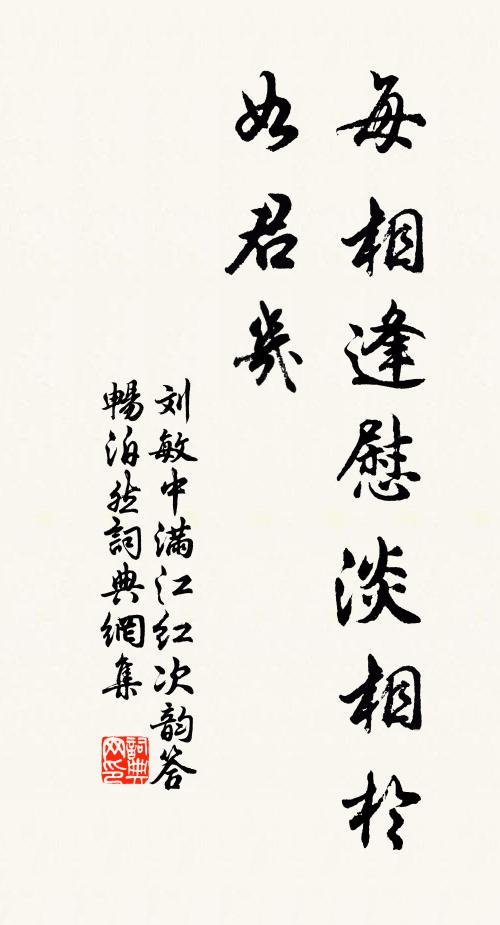 每相逢慰淡相於
如君幾
刘敏中满江红次韵答
暢泊然詞典網集
詞典
网印